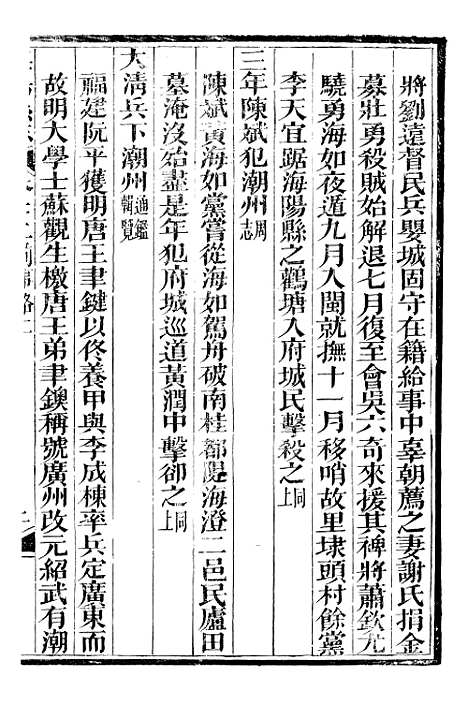 將劉遠督民兵嬰城固守在籍給事中辜朝薦之妻謝氏捐金
募壯勇殺賊始解退七月復至會吳六奇來援其裨將蕭欽尤
驍勇海如夜遁九月入閩就撫十一月移哨故里埭頭村餘黨
李天宜踞海陽縣之鸛塘入府城民擊殺之同上
三年陳斌犯潮州周志
陳斌黃海如黨嘗從海如駕舟破南桂都隄海澄二邑民廬田
墓淹沒殆盡是年犯府城巡道黃潤中擊卻之同上
大淸兵下潮州通鑑輯覽
福建旣平獲明唐王聿鍵以佟養甲與李成棟率兵定廣東而
故明大學士蘇觀生檄唐王弟聿鐭稱號廣州改元紹武有潮